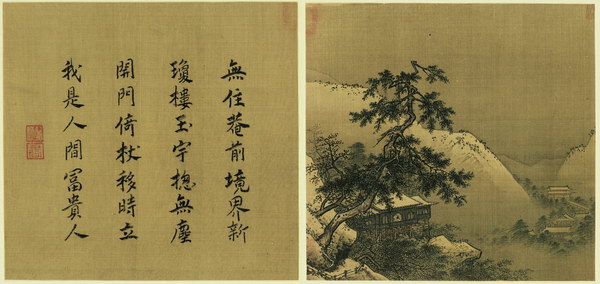 無住菴前境界新
瓊樓玉宇摠無塵
開門倚杖移時立
我是人間富貴人